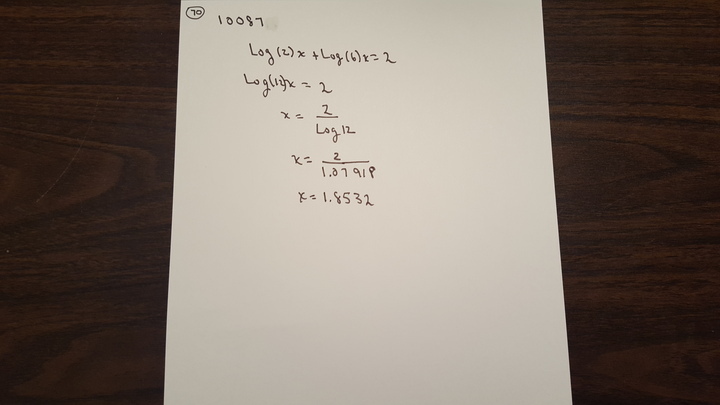 70 10087
Log(2)x + Log(6)x = 2
Log(12)x = 2
x = 2 / Log 12
x = 2 / 1.07918
x = 1.8532